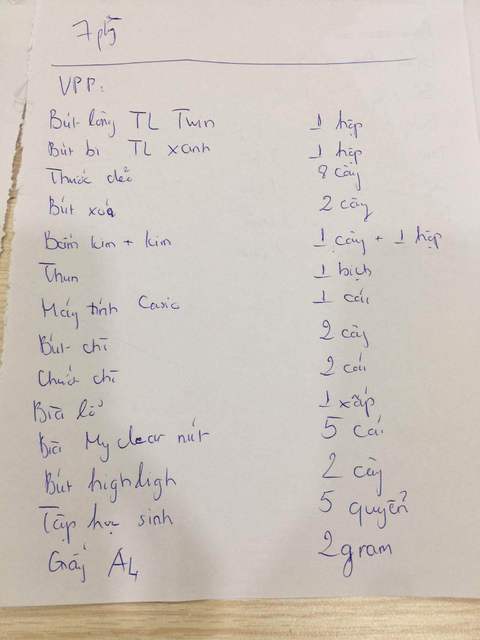 VPP:
Bút lông TL Twin 1 hộp
Bút bi TL xanh 1 hộp
Thước dẻo 2 cây
Bút xoá 2 cây
Bấm kim + kim 1 cây + 1 hộp
Thun 1 bịch
Máy tính Casio 1 cái
Bút chì 2 cây
Chuốt chì 2 cái
Bìa lỗ 1 xấp
Bìa My clear nút 5 cái
Bút highligh 2 cây
Tập học sinh 5 quyển
Giấy A4 2 gram